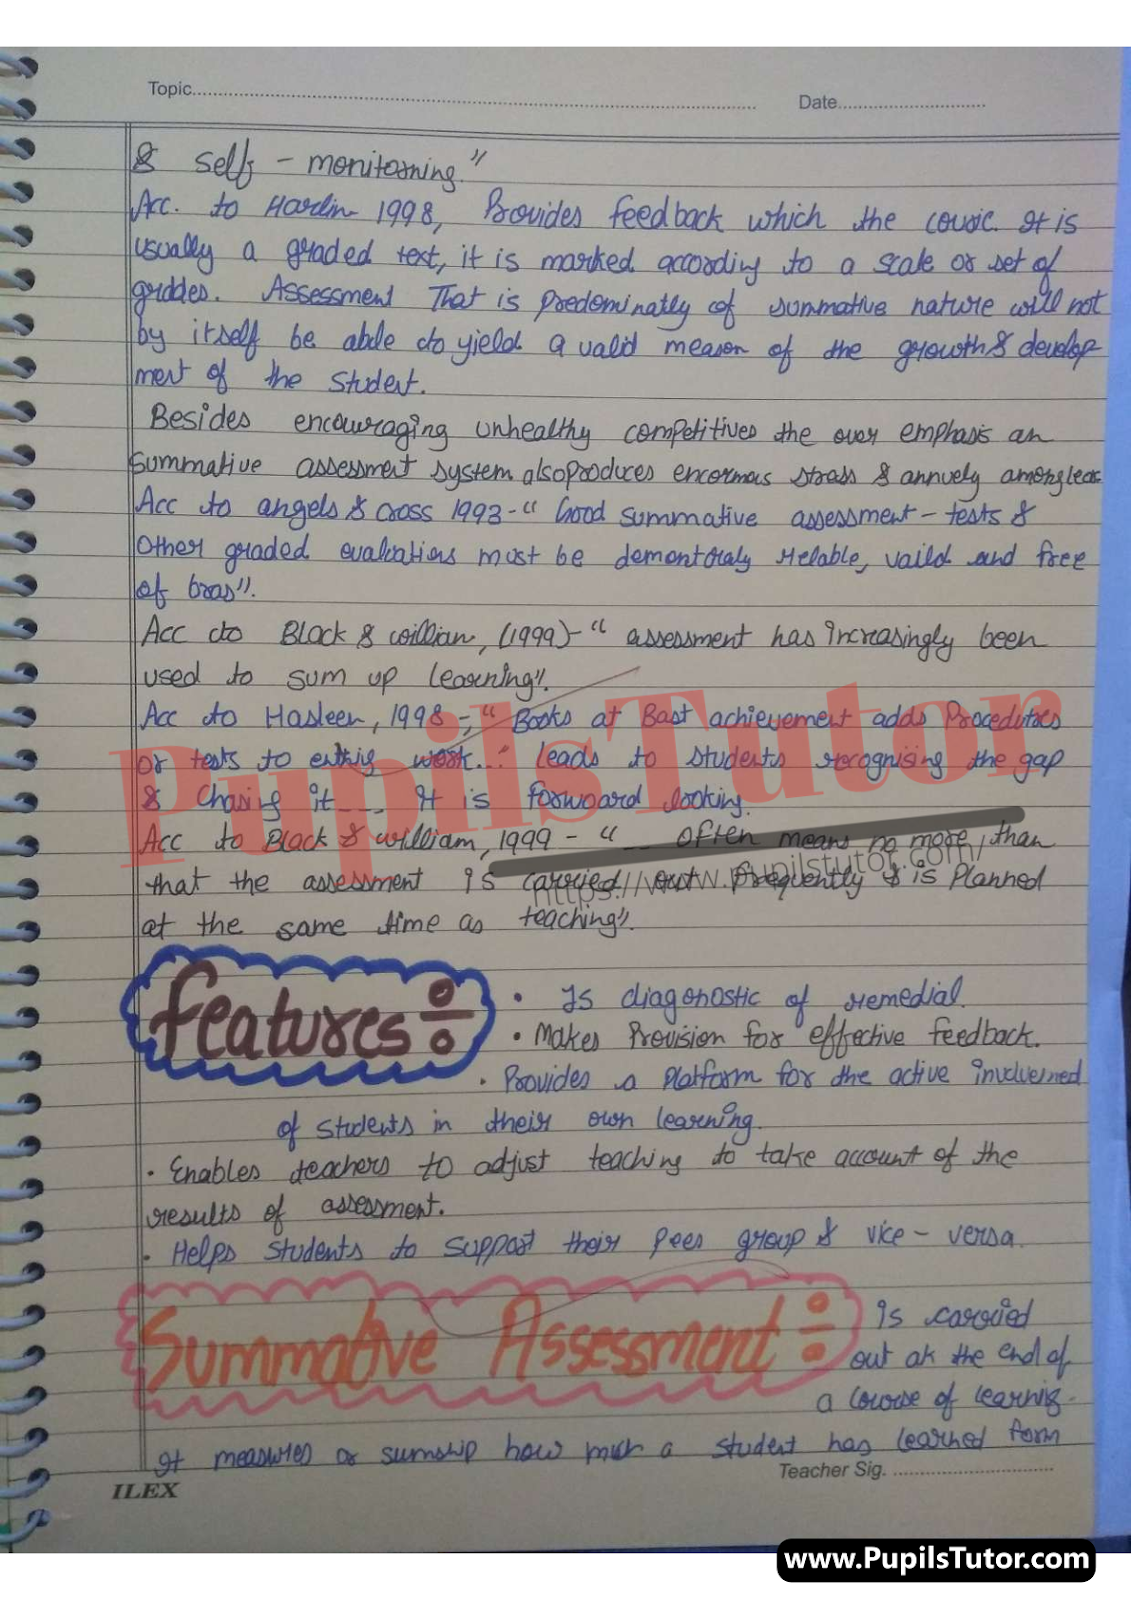 Topic.......... Date..........
& self - monitoring."
Acc. to Harlin 1998, Provides feedback which the It is
usually a graded text, it is marked according to a scale or set of
graddes. Assessment That is Predominatly of summative nature will not
by itself be able to yield a valid meason of the growth & develop-
ment of the student.
Besides encouraging unhealthy competitives the over emphasis an
summative assessment system also produces encormous stress & among
Acc to angels & cross 1993 - " Good summative assessment - tests &
Other graded evaluations must be relable, vaild and free
of bras".
Acc to Black & willian, (1999) - " assessment has increasingly been
used to sum up learning".
Acc to Hasleen, 1998 - " Books at Bast achievement adds Procedures
or tests to work... leads to students recognising the gap
& Chasing it ___. It is forwoard looking.
Acc to Black & william, 1999 - " __ often means no more, than
that the assessment is carried out frequently & is Planned
at the same time as teaching".
Features ÷ • Is diagonostic of remedial.
• Makes Provision for effective feedback.
• Provides a Platform for the active involvemed
of students in their own learning.
• Enables teachers to adjust teaching to take account of the
results of assessment.
• Helps students to support their pees group & vice - versa.
Summative Assessment ÷ is carried
out at the end of
a course of learnig.
It measures or how much a student has learned form
Teacher Sig. ..........
ILEX
PupilsTutor
https://www.pupilstutor.com/
www.PupilsTutor.com